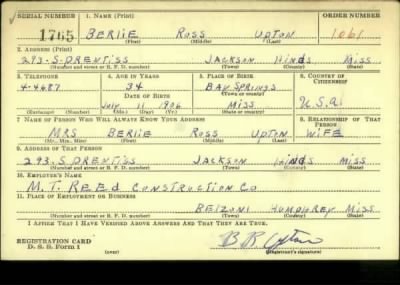 SERIAL NUMBER 1. NAME (Print) ORDER NUMBER
1765 BERLIE ROSS UPTON 1061
(First) (Middle) (Last)
2. ADDRESS (Print)
293-S. PRENTISS JACKSON HINDS MISS
(Number and street or R. F. D. number) (Town) (County) (State)
3. TELEPHONE 4. AGE IN YEARS 5. PLACE OF BIRTH 6. COUNTRY OF CITIZENSHIP
4-4687 34 BAY SPRINGS
DATE OF BIRTH (Town or county)
JULY 11 1906 MISS U.S.A.
(Exchange) (Number) (Mo.) (Day) (Yr.) (State or country)
7. NAME OF PERSON WHO WILL ALWAYS KNOW YOUR ADDRESS 8. RELATIONSHIP OF THAT PERSON
MRS BERLIE ROSS UPTON WIFE
(Mr., Mrs., Miss) (First) (Middle) (Last)
9. ADDRESS OF THAT PERSON
293-S PRENTISS JACKSON HINDS MISS
(Number and street or R. F. D. number) (Town) (County) (State)
10. EMPLOYER'S NAME
M. T. REED CONSTRUCTION CO
11. PLACE OF EMPLOYMENT OR BUSINESS
BELZONI HUMPHREY MISS
(Number and street or R. F. D. number) (Town) (County) (State)
I AFFIRM THAT I HAVE VERIFIED ABOVE ANSWERS AND THAT THEY ARE TRUE.
REGISTRATION CARD
D. S. S. Form 1 (over) B R Upton
(Registrant's signature)